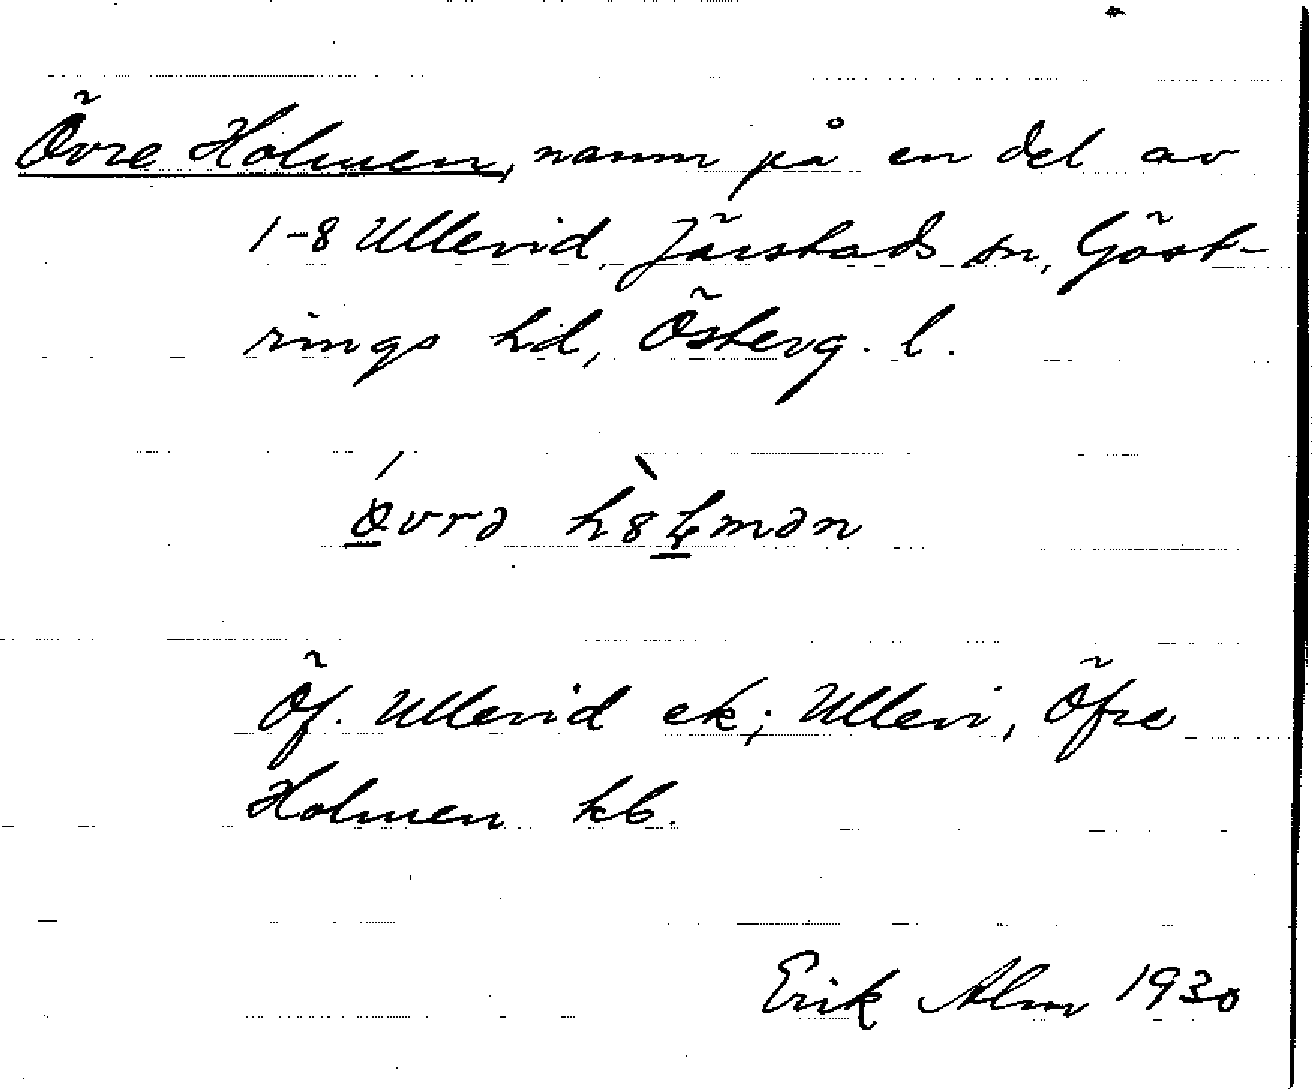 Övre Holmen, namn på en del av
1-8 Ullevid, Järstads sn, Göst-
rings hd, Österg. l.
Öf. Ullevid ek; Ullevi, Öfre
Holmen kb.
Erik Alm 1930